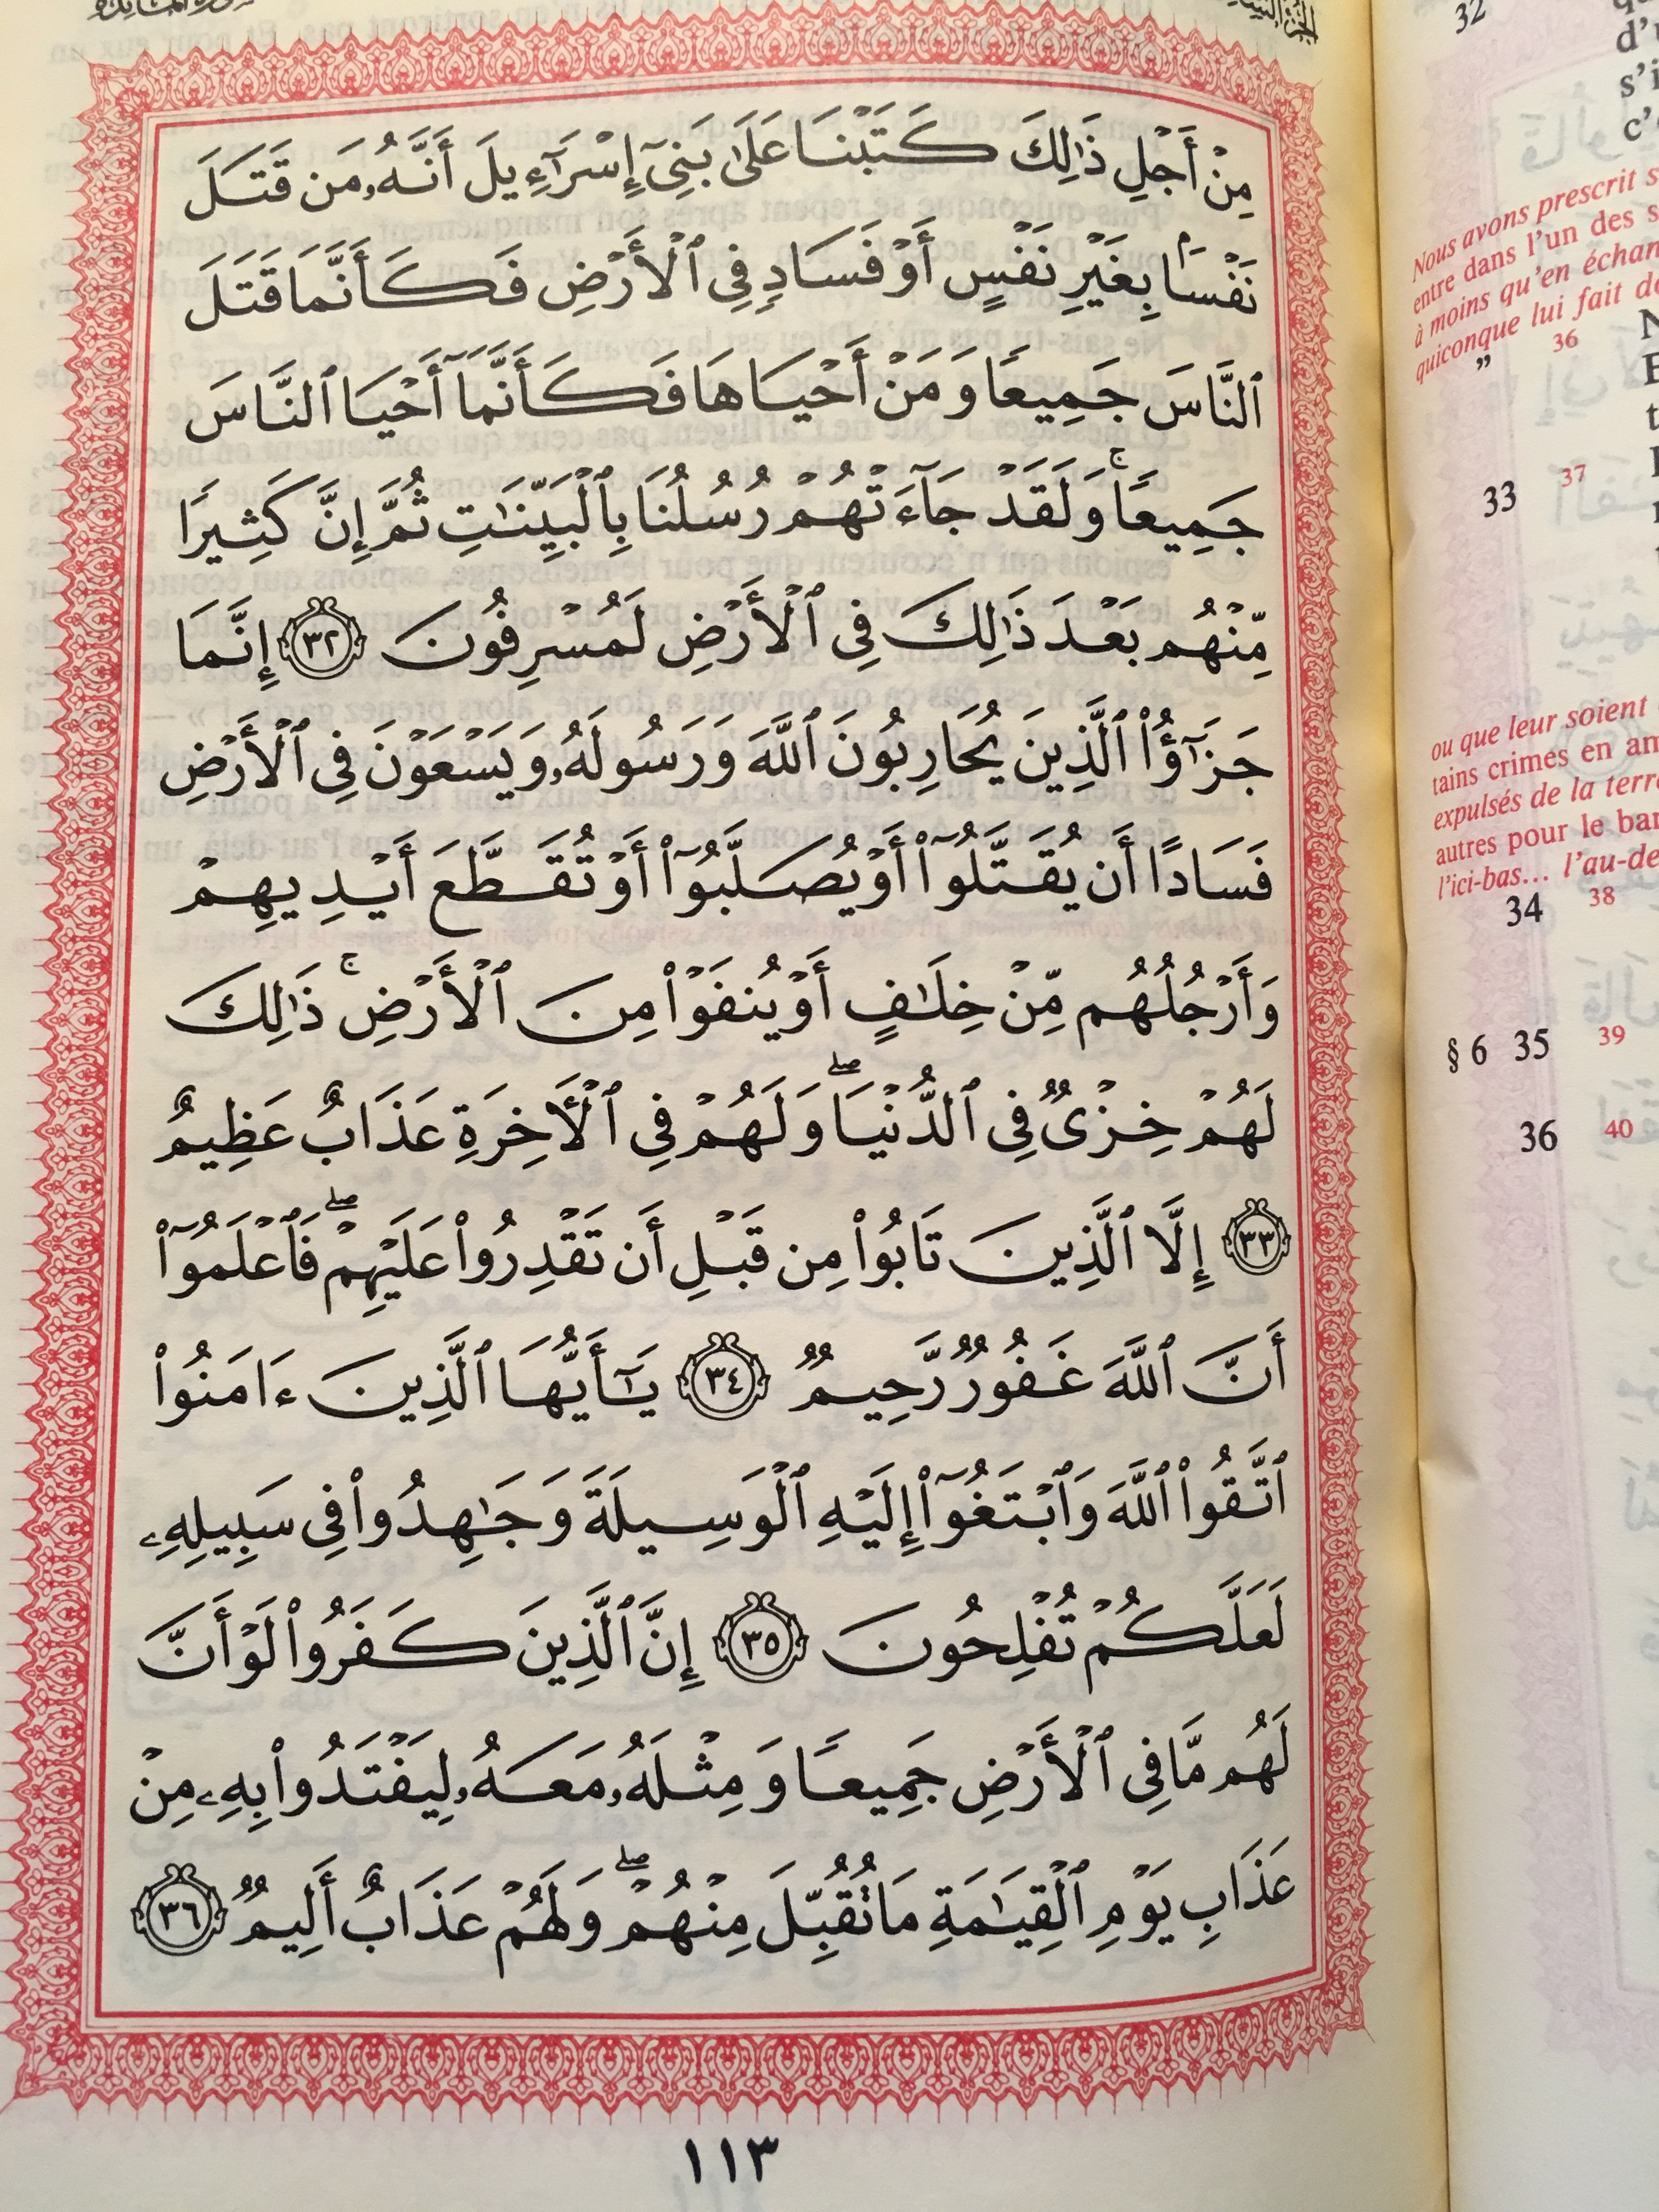 مِنْ أَجْلِ ذَٰلِكَ كَتَبْنَا عَلَىٰ بَنِىٓ إِسْرَٰٓءِيلَ أَنَّهُۥ مَن قَتَلَ
نَفْسًۢا بِغَيْرِ نَفْسٍ أَوْ فَسَادٍ فِى ٱلْأَرْضِ فَكَأَنَّمَا قَتَلَ
ٱلنَّاسَ جَمِيعًا وَمَنْ أَحْيَاهَا فَكَأَنَّمَآ أَحْيَا ٱلنَّاسَ
جَمِيعًا ۚ وَلَقَدْ جَآءَتْهُمْ رُسُلُنَا بِٱلْبَيِّنَٰتِ ثُمَّ إِنَّ كَثِيرًا
مِّنْهُم بَعْدَ ذَٰلِكَ فِى ٱلْأَرْضِ لَمُسْرِفُونَ ٣٢ إِنَّمَا
جَزَٰٓؤُا۟ ٱلَّذِينَ يُحَارِبُونَ ٱللَّهَ وَرَسُولَهُۥ وَيَسْعَوْنَ فِى ٱلْأَرْضِ
فَسَادًا أَن يُقَتَّلُوٓا۟ أَوْ يُصَلَّبُوٓا۟ أَوْ تُقَطَّعَ أَيْدِيهِمْ
وَأَرْجُلُهُم مِّنْ خِلَٰفٍ أَوْ يُنفَوْا۟ مِنَ ٱلْأَرْضِ ۚ ذَٰلِكَ
لَهُمْ خِزْىٌ فِى ٱلدُّنْيَا ۖ وَلَهُمْ فِى ٱلْأَخِرَةِ عَذَابٌ عَظِيمٌ
٣٣ إِلَّا ٱلَّذِينَ تَابُوا۟ مِن قَبْلِ أَن تَقْدِرُوا۟ عَلَيْهِمْ ۖ فَٱعْلَمُوٓا۟
أَنَّ ٱللَّهَ غَفُورٌ رَّحِيمٌ ٣٤ يَٰٓأَيُّهَا ٱلَّذِينَ ءَامَنُوا۟
ٱتَّقُوا۟ ٱللَّهَ وَٱبْتَغُوٓا۟ إِلَيْهِ ٱلْوَسِيلَةَ وَجَٰهِدُوا۟ فِى سَبِيلِهِۦ
لَعَلَّكُمْ تُفْلِحُونَ ٣٥ إِنَّ ٱلَّذِينَ كَفَرُوا۟ لَوْ أَنَّ
لَهُم مَّا فِى ٱلْأَرْضِ جَمِيعًا وَمِثْلَهُۥ مَعَهُۥ لِيَفْتَدُوا۟ بِهِۦ مِنْ
عَذَابِ يَوْمِ ٱلْقِيَٰمَةِ مَا تُقُبِّلَ مِنْهُمْ ۖ وَلَهُمْ عَذَابٌ أَلِيمٌ ٣٦
١١٣
32
d'
s'i
c'
Nous avons prescrit
entre dans l'un des
à moins qu'en échan
quiconque lui fait
" 36
33 37
ou que leur soient
tains crimes en
expulsés de la terre
autres pour le
l'ici-bas... l'au-de
34 38
§ 6 35 39
36 40